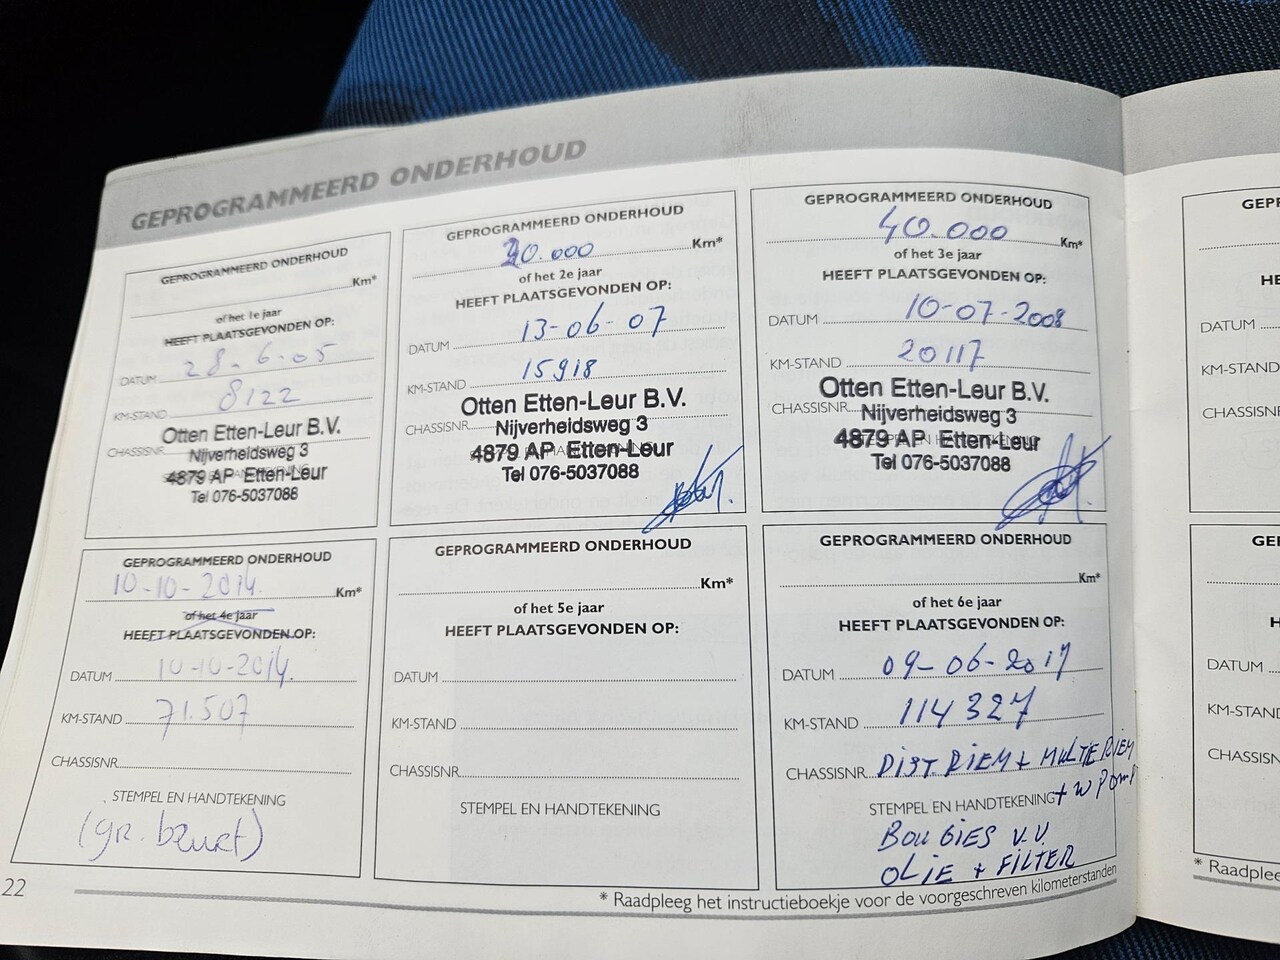 GEPROGRAMMEERD ONDERHOUD
GEPROGRAMMEERD ONDERHOUD
Km*
of het 1e jaar
HEEFT PLAATSGEVONDEN OP:
DATUM 28-6-05
KM-STAND 8122
CHASSISNR.
Otten Etten-Leur B.V.
Nijverheidsweg 3
4879 AP Etten-Leur
Tel 076-5037088
GEPROGRAMMEERD ONDERHOUD
20.000 Km*
of het 2e jaar
HEEFT PLAATSGEVONDEN OP:
DATUM 13-06-07
KM-STAND 15918
CHASSISNR.
Otten Etten-Leur B.V.
Nijverheidsweg 3
4879 AP Etten-Leur
Tel 076-5037088
GEPROGRAMMEERD ONDERHOUD
40.000 Km*
of het 3e jaar
HEEFT PLAATSGEVONDEN OP:
DATUM 10-07-2008
KM-STAND 20117
CHASSISNR.
Otten Etten-Leur B.V.
Nijverheidsweg 3
4879 AP Etten-Leur
Tel 076-5037088
GEPROGRAMMEERD ONDERHOUD
10-10-2014. Km*
of het 4e jaar
HEEFT PLAATSGEVONDEN OP:
DATUM 10-10-2014.
KM-STAND 71.507
CHASSISNR.
STEMPEL EN HANDTEKENING
(gr. beurt)
GEPROGRAMMEERD ONDERHOUD
Km*
of het 5e jaar
HEEFT PLAATSGEVONDEN OP:
DATUM
KM-STAND
CHASSISNR.
STEMPEL EN HANDTEKENING
GEPROGRAMMEERD ONDERHOUD
Km*
of het 6e jaar
HEEFT PLAATSGEVONDEN OP:
DATUM 09-06-2017
KM-STAND 114327
CHASSISNR DIST. RIEM + MULTIE RIEM
STEMPEL EN HANDTEKENING + W POMP
BOUGIES V.V.
OLIE + FILTER
22
* Raadpleeg het instructieboekje voor de voorgeschreven kilometerstanden
GEPR
HE
DATUM
KM-STAND
CHASSISNR
GE
HE
DATUM
KM-STAND
CHASSISNR
* Raadplee